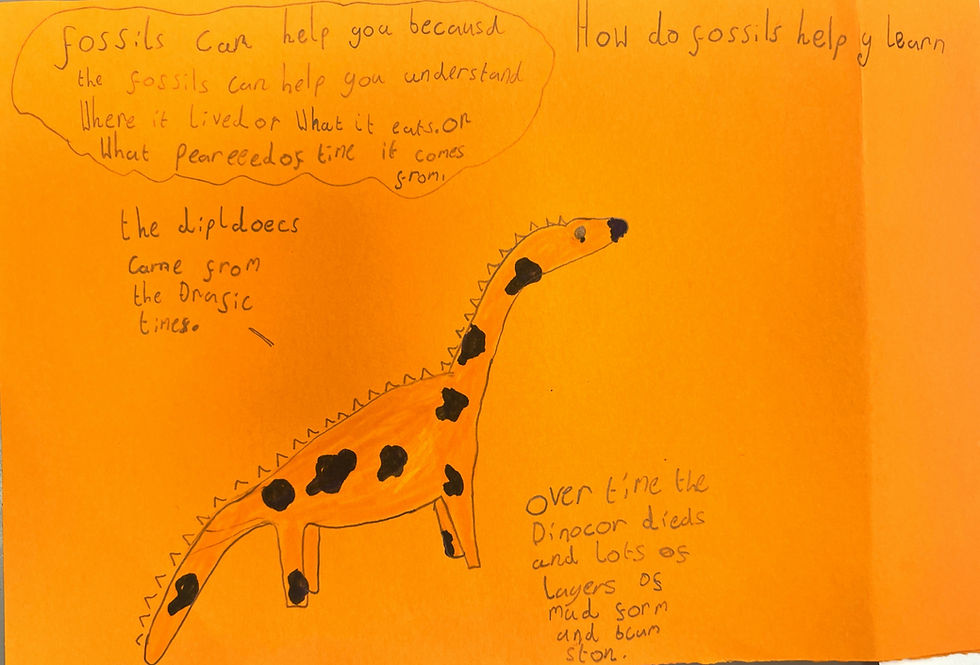 How do fossils help y learn
fossils can help you becausd
the fossils can help you understand
Where it lived or What it eats. or
What peareeedof time it comes
from.
the dipldoecs
came from
the Drasic
times.
Over time the
Dinocor dieds
and lots of
layers of
mud form
and bcum
ston.